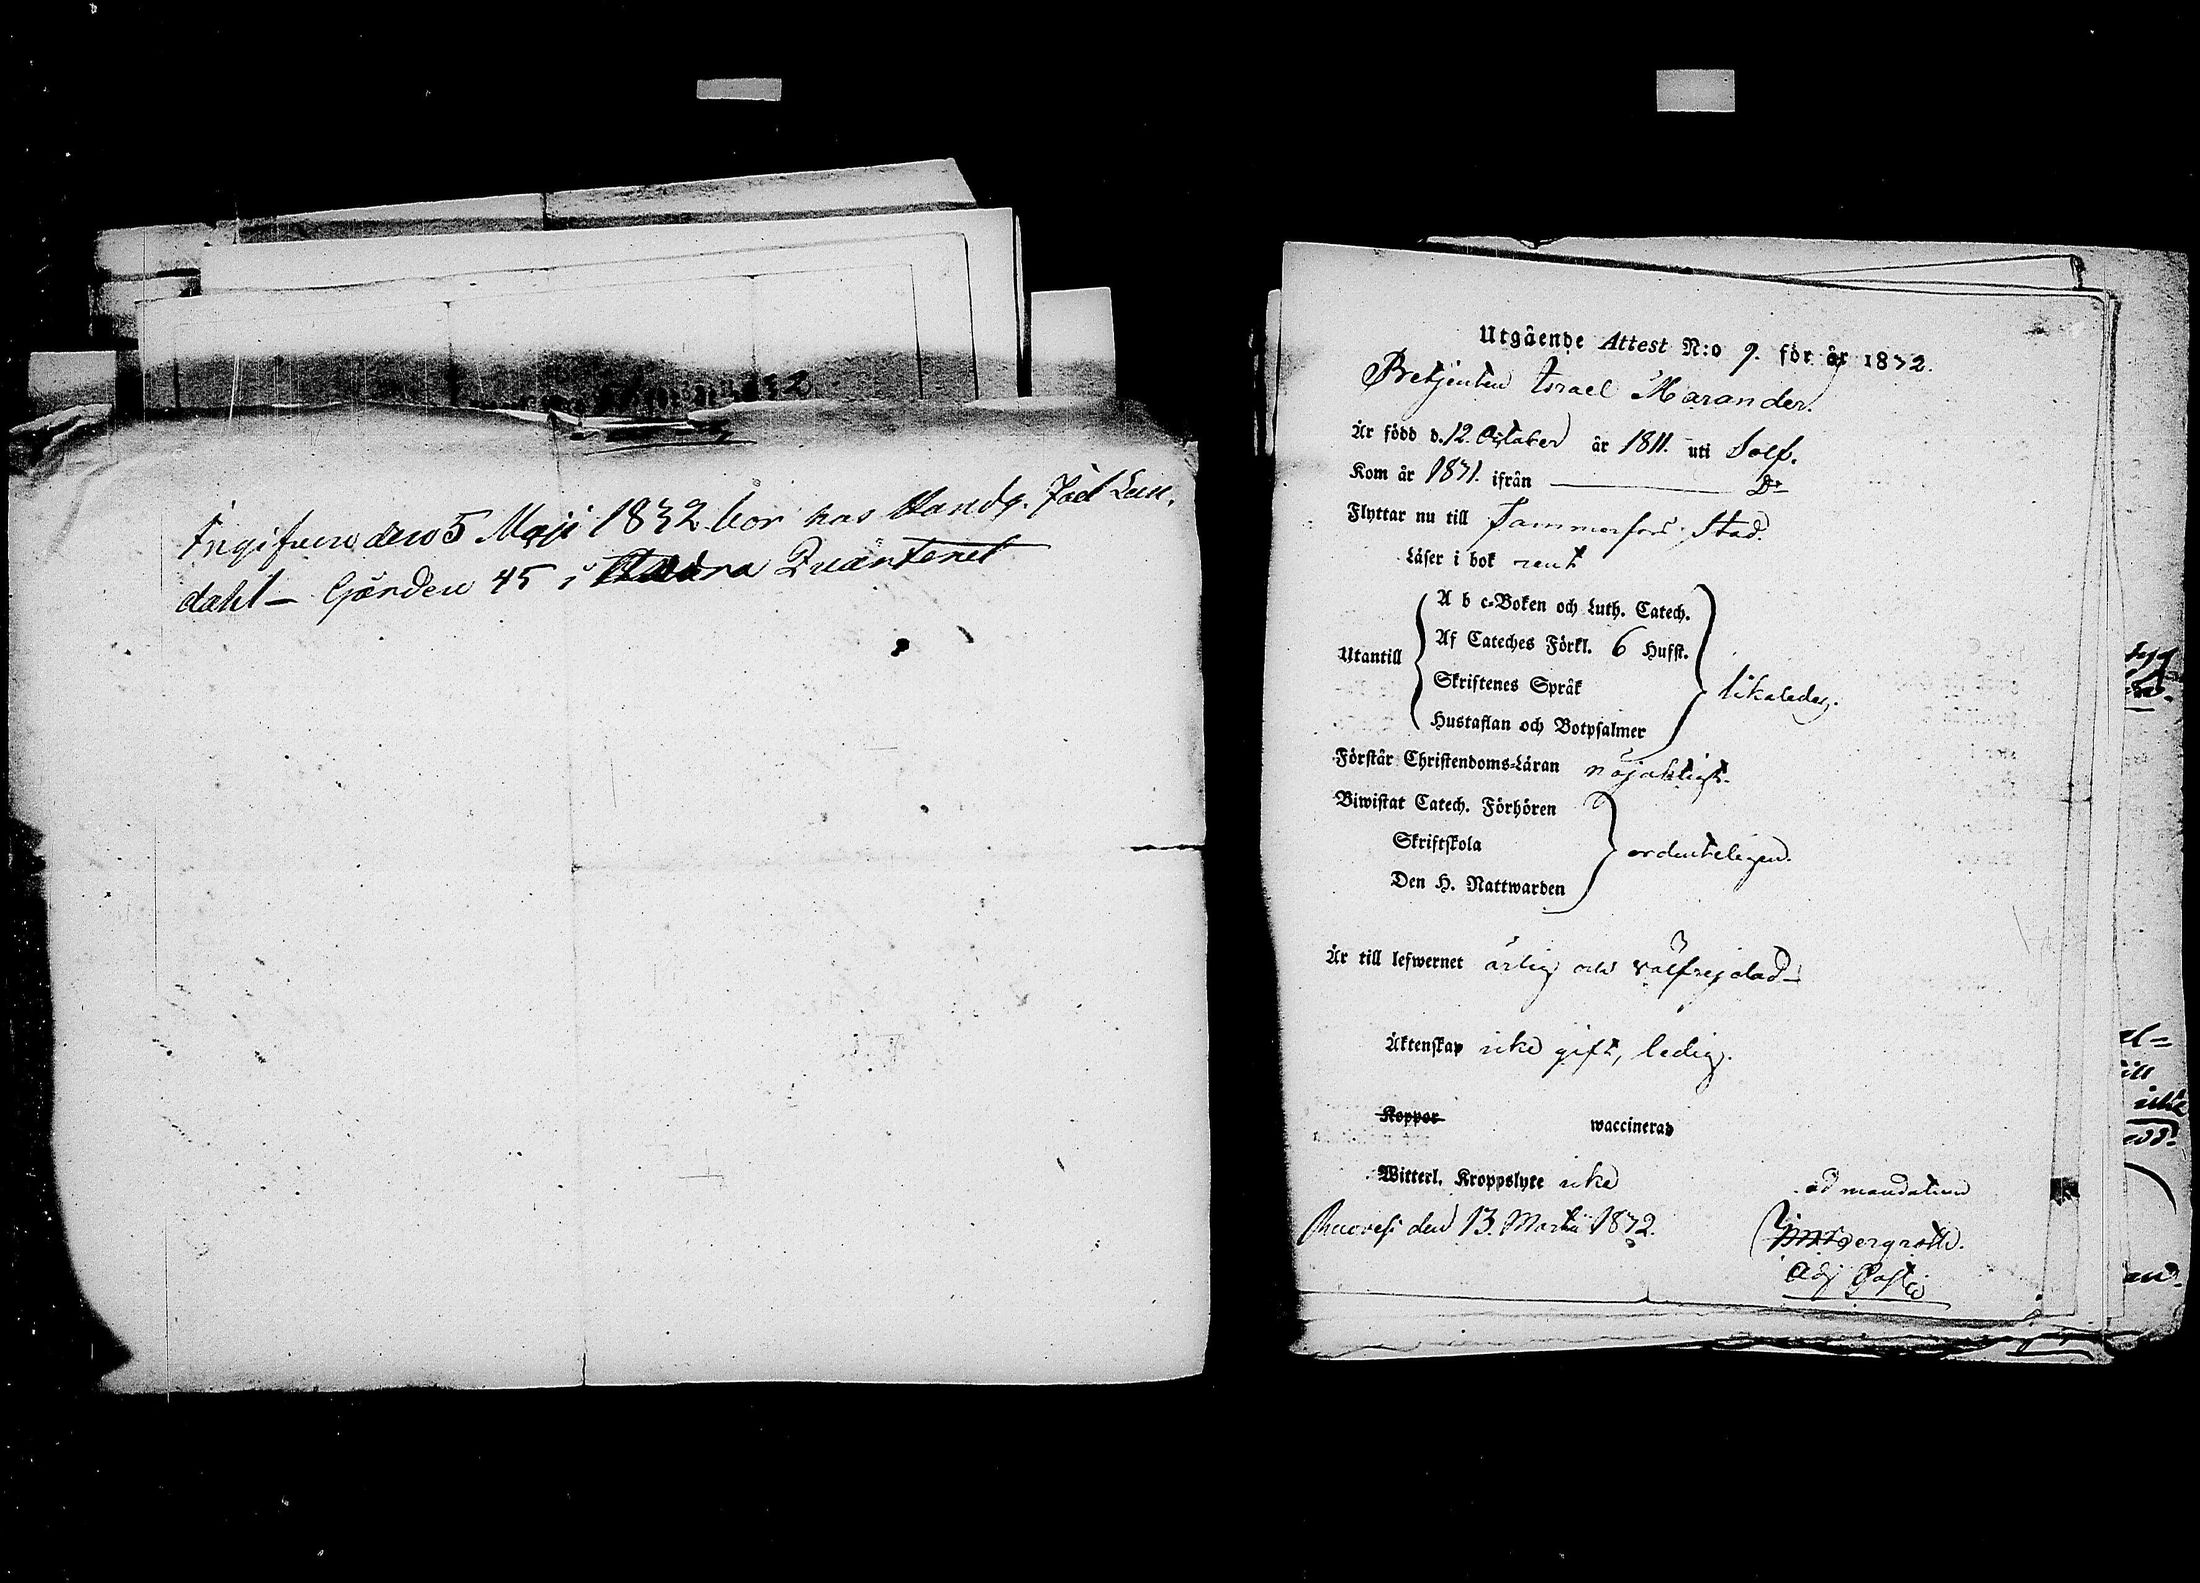 Ingifven den 5 Maji 1832 bor hos Handg. Joel Lun,
dahl – Gården 45 i Andra Quarteret
Utgående Attest N:o 9. för år 1832.
Betjenten Israel Marander.
Är född d. 12. October år 1811. uti Solf.
Kom år 1831. ifrån — D:o
Flyttar nu till Tammerfors Stad.
Läser i bok rent
A b c-Boken och Luth. Catech.
Af Cateches Förkl. 6 Hufst.
Utantill
Skriftenes Språk
likaledes.
Hustaflan och Botpsalmer
Förstår Christendoms-Läran nöjaktigt.
Biwistat Catech. Förhören
Skriftskola
ordenteligen.
Den H. Nattwarden
Är till lefwernet ärlig och välfrejdad
Äktenskap icke gift, ledig.
Koppor waccinerad
Witterl. Kroppslyte icke
ad mandatum
den 13. Martii 1832.
Adj Past